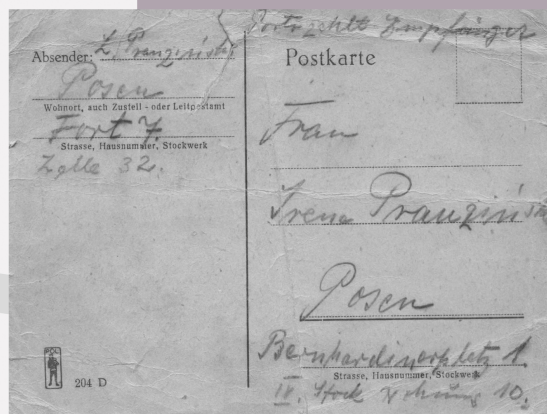 Porto zahlt Empfänger
Absender: L. Pranziński
Posen
Wohnort, auch Zustell- oder Leitpostamt
Fort 7.
Strasse, Hausnummer, Stockwerk
Zelle 32.
204 D
Postkarte
Frau
Irena Pranziński
Posen
Bernhardinerplatz 1.
Strasse, Hausnummer, Stockwerk
IV. Stock Wohnung 10.